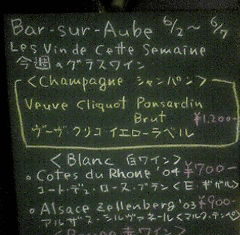 Bar-sur-Aube 6/2～6/7
Les Vin de Cette Semaine
今週のグラスワイン
<Champagne シャンパン>
Veuve Cliquot Ponsardin
Brut ¥1,200-
ヴーヴ クリコ イエローラベル
<Blanc 白ワイン>
Cotes du Rhone '04 ¥700-
コート・デュ・ローヌ・ブラン <E・ギガル>
Alsace Zellenberg '03 ¥900-
アルザス・シルヴァーネール<マルク・テンペ>